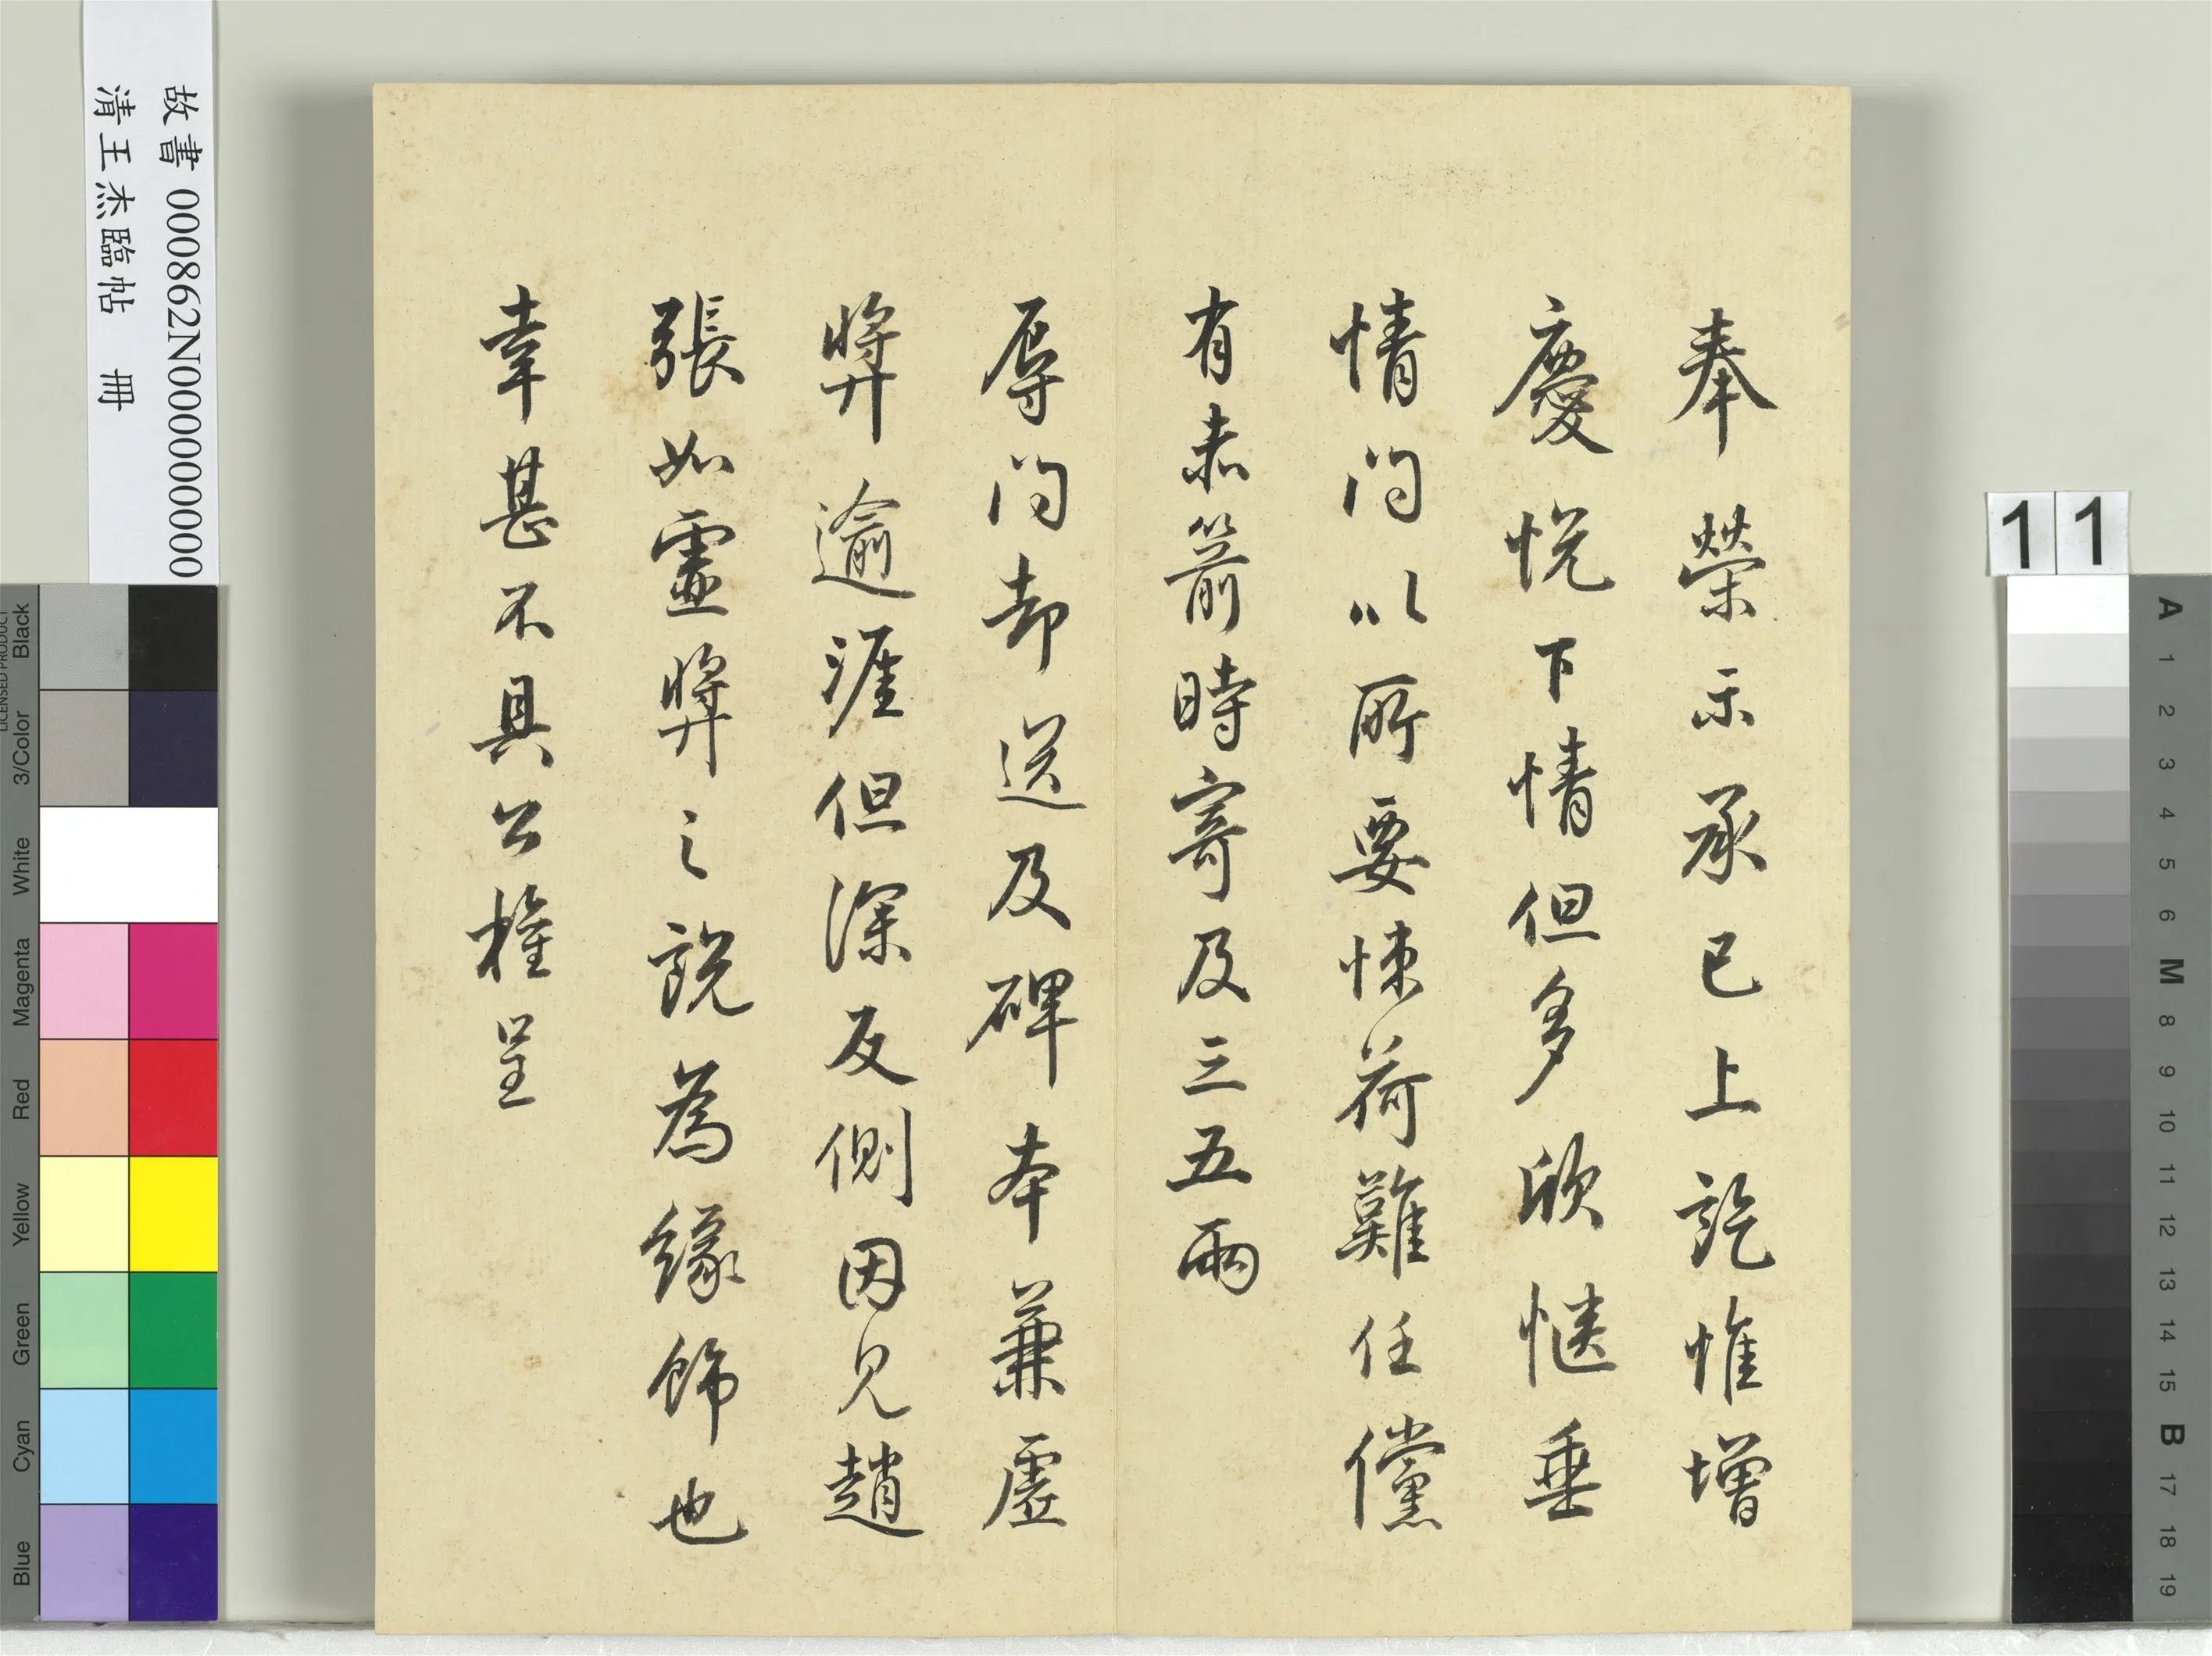 奉榮示承已上訖惟增
慶悅下情但多欣愜垂
情問以所要悚荷難任儻
有赤箭時寄及三五兩
辱問卻送及碑本兼虛
獎逾涯但深反側因見趙
張如虛獎之說為緣飾也
幸甚不具公權呈
故書 000862N000000000
清王杰臨帖 冊
11
LICENSED PRODUCT
Black
3/Color
White
Magenta
Red
Yellow
Green
Cyan
Blue
A
1
2
3
4
5
6
M
8
9
10
11
12
13
14
15
B
17
18
19